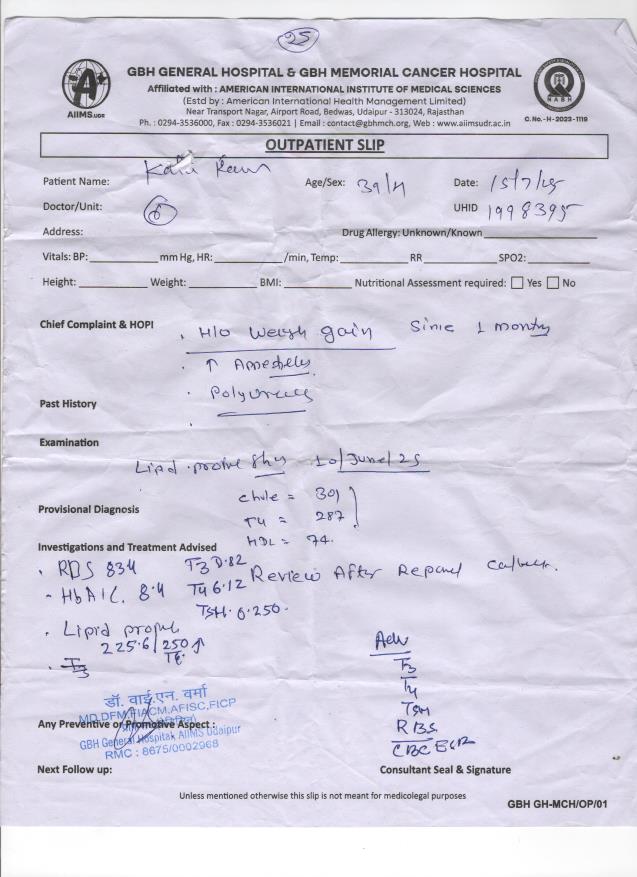 25
GBH GENERAL HOSPITAL & GBH MEMORIAL CANCER HOSPITAL
Affiliated with : AMERICAN INTERNATIONAL INSTITUTE OF MEDICAL SCIENCES
(Estd by : American International Health Management Limited)
Near Transport Nagar, Airport Road, Bedwas, Udaipur - 313024, Rajasthan
Ph. : 0294-3536000, Fax : 0294-3536021 | Email : contact@gbhmch.org, Web : www.aiimsudr.ac.in
AIIMS.UDR
NABH
C. No.- H - 2023 - 1119
OUTPATIENT SLIP
Patient Name: Age/Sex: 39/M Date: 15/7/25
Doctor/Unit: 6 UHID 1998395
Address: Drug Allergy: Unknown/Known
Vitals: BP: mm Hg, HR: /min, Temp: RR SPO2:
Height: Weight: BMI: Nutritional Assessment required: Yes No
Chief Complaint & HOPI
H/O Weigh gain Since 1 month
↑
Past History
Examination
Lipid profile 10/June/25
Provisional Diagnosis
Chole = 301
TG = 287
HDL = 74.
Investigations and Treatment Advised
RBS 834 T3 0.82
HbA1C. 8.4 T4 6.12 Review After Repeat
TSH. 0.250.
Lipid profile
225.6/250↑
TG
T3
Adv
T3
T4
TSH
RBS
CBC ECG
डॉ. वाई.एन. वर्मा
MD,DFM,FIACM,AFISC,FICP
Any Preventive or Promotive Aspect :
GBH General Hospital, AIIMS Udaipur
RMC : 8675/0002968
Next Follow up: Consultant Seal & Signature
Unless mentioned otherwise this slip is not meant for medicolegal purposes
GBH GH-MCH/OP/01